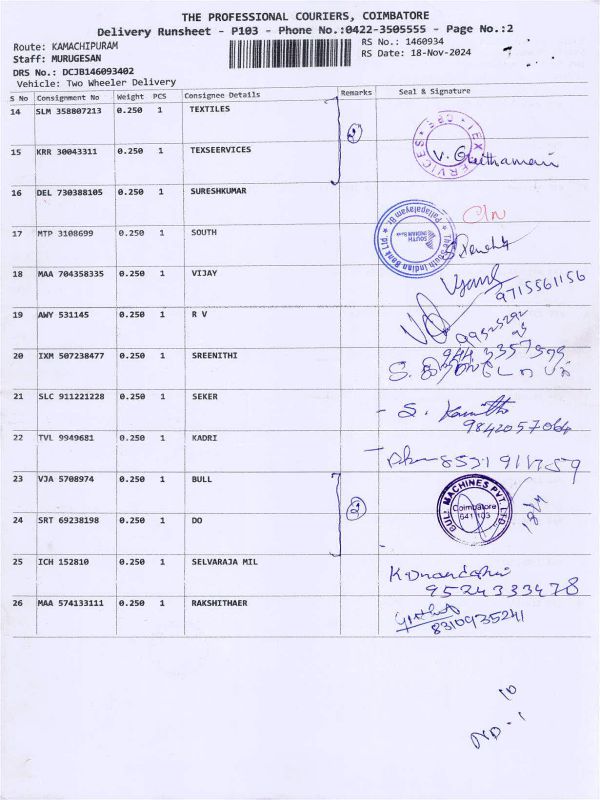 THE PROFESSIONAL COURIERS, COIMBATORE
Delivery Runsheet - P103 - Phone No.:0422-3505555 - Page No.:2
Route: KAMACHIPURAM
RS No.: 1460934
Staff: MURUGESAN
RS Date: 18-Nov-2024
DRS No.: DCJB146093402
Vehicle: Two Wheeler Delivery
S No Consignment No Weight PCS Consignee Details Remarks Seal & Signature
14 SLM 358807213 0.250 1 TEXTILES
2
15 KRR 30043311 0.250 1 TEXSEERVICES
16 DEL 730388105 0.250 1 SURESHKUMAR
17 MTP 3108699 0.250 1 SOUTH
18 MAA 704358335 0.250 1 VIJAY
9715561156
19 AWY 531145 0.250 1 R V
20 IXM 507238477 0.250 1 SREENITHI
21 SLC 911221228 0.250 1 SEKER
9842057064
22 TVL 9949681 0.250 1 KADRI
23 VJA 5708974 0.250 1 BULL
2
BULL MACHINES PVT. LTD
Coimbatore
641 103
24 SRT 69238198 0.250 1 DO
25 ICH 152810 0.250 1 SELVARAJA MIL
9524333478
26 MAA 574133111 0.250 1 RAKSHITHAER
8310935241